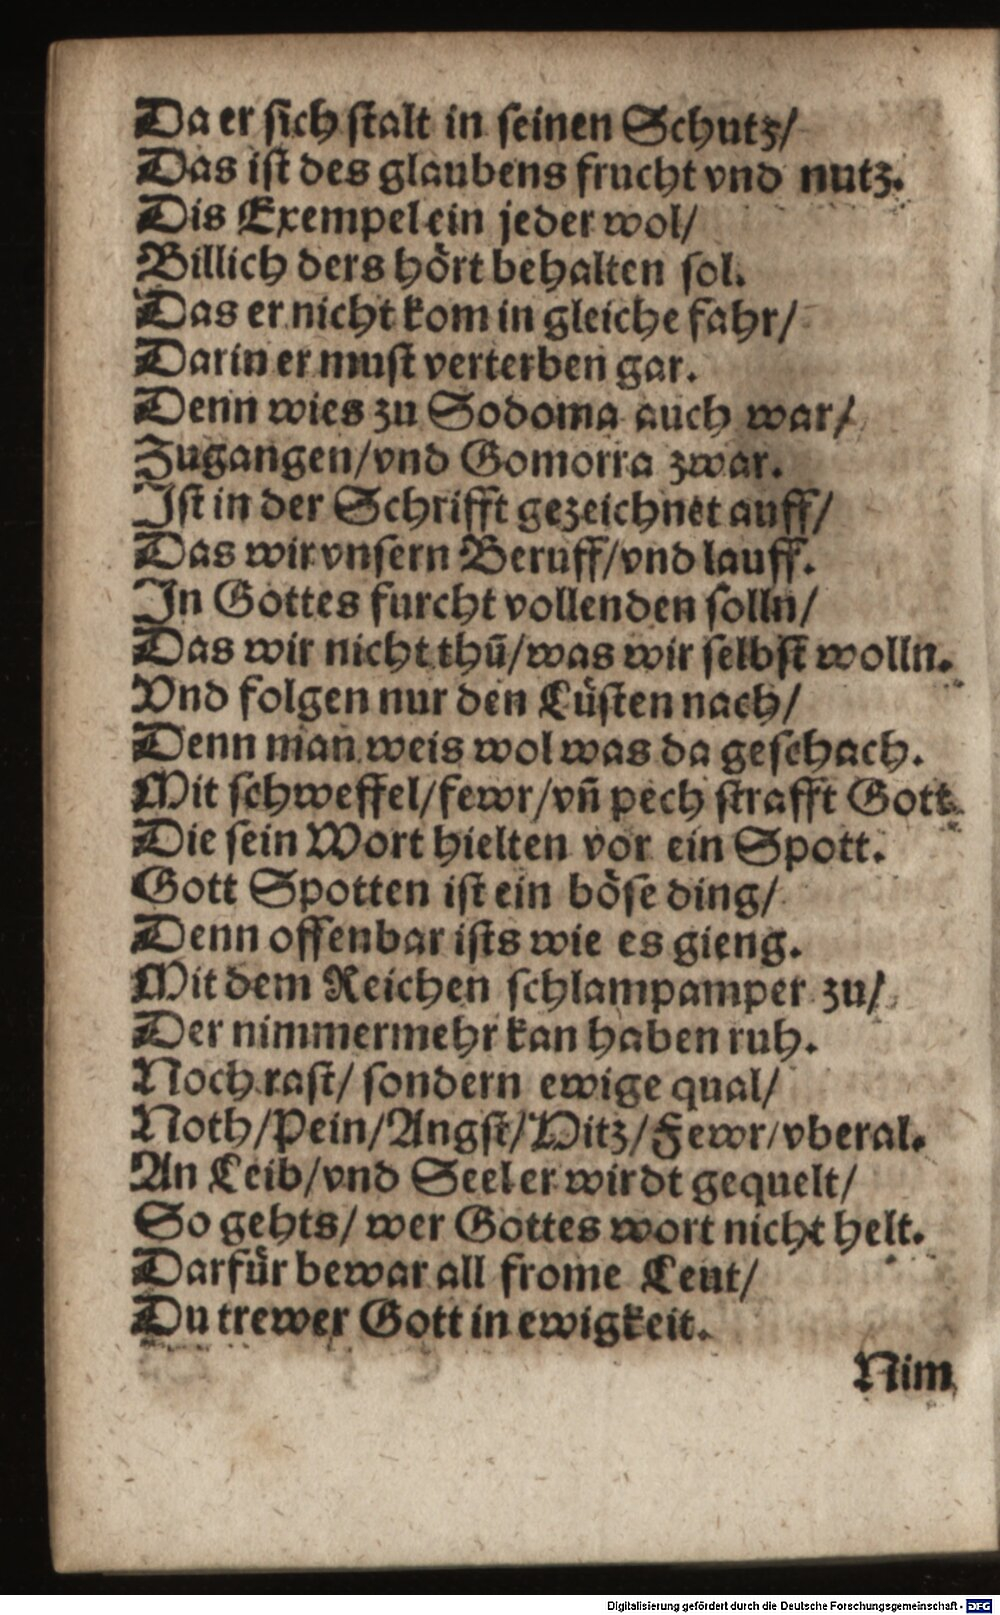 Da er sich stalt in seinen Schutz/
Das ist des glaubens frucht vnd nutz.
Dis Exempel ein jeder wol/
Billich ders hört behalten sol.
Das er nicht kom in gleiche fahr/
Darin er must verterben gar.
Denn wies zu Sodoma auch war/
Zugangen/vnd Gomorra zwar.
Ist in der Schrifft gezeichnet auff/
Das wir vnsern Beruff/vnd lauff.
In Gottes furcht vollenden solln/
Das wir nicht thū/was wir selbst wolln.
Vnd folgen nur den Lüsten nach/
Denn man weis wol was da geschach.
Mit schweffel/fewr/vn̄ pech strafft Gott
Die sein Wort hielten vor ein Spott.
Gott Spotten ist ein böse ding/
Denn offenbar ists wie es gieng.
Mit dem Reichen schlampamper zu/
Der nimmermehr kan haben ruh.
Noch rast/ sondern ewige qual/
Noth/Pein/Angst/Hitz/Fewr/vberal.
An Leib/vnd Seel er wirdt gequelt/
So gehts/ wer Gottes wort nicht helt.
Darfür bewar all frome Leut/
Du trewer Gott in ewigkeit.
Nim
Digitalisierung gefördert durch die Deutsche Forschungsgemeinschaft - DFG